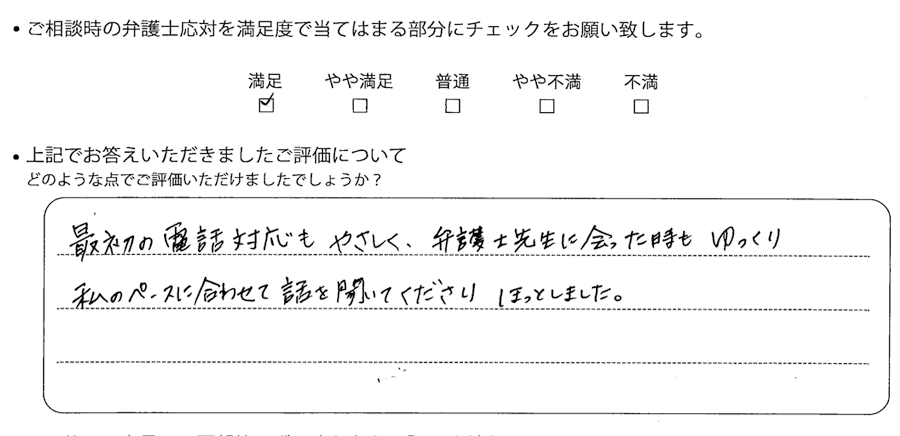 • ご相談時の弁護士応対を満足度で当てはまる部分にチェックをお願い致します。
満足 やや満足 普通 やや不満 不満
☑ ☐ ☐ ☐ ☐
• 上記でお答えいただきましたご評価について
どのような点でご評価いただけましたでしょうか？
最初の電話対応も やさしく、弁護士先生に会った時も ゆっくり
私のペースに合わせて話を聞いてくださり ほっとしました。